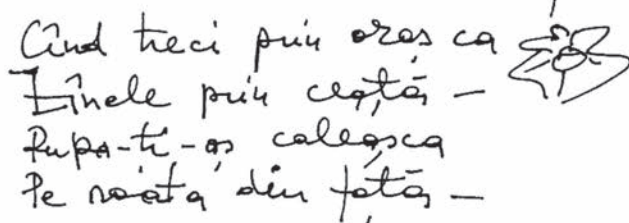 Cînd treci prin oraș ca
Zînele prin ceață —
Rupe-ți-aș caleașca
Pe roata din față —